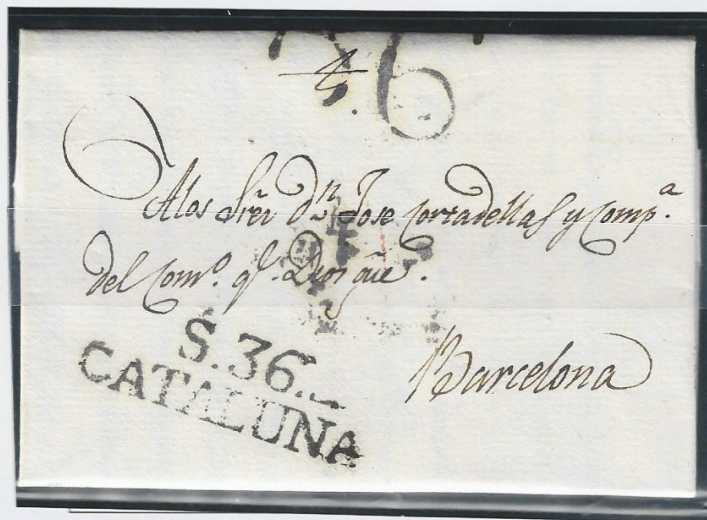 6
A los Sres. dn. Jose Cortadellas y Compa.
del Como. qe. Dios gue.
Barcelona
S.36.
CATALUNA